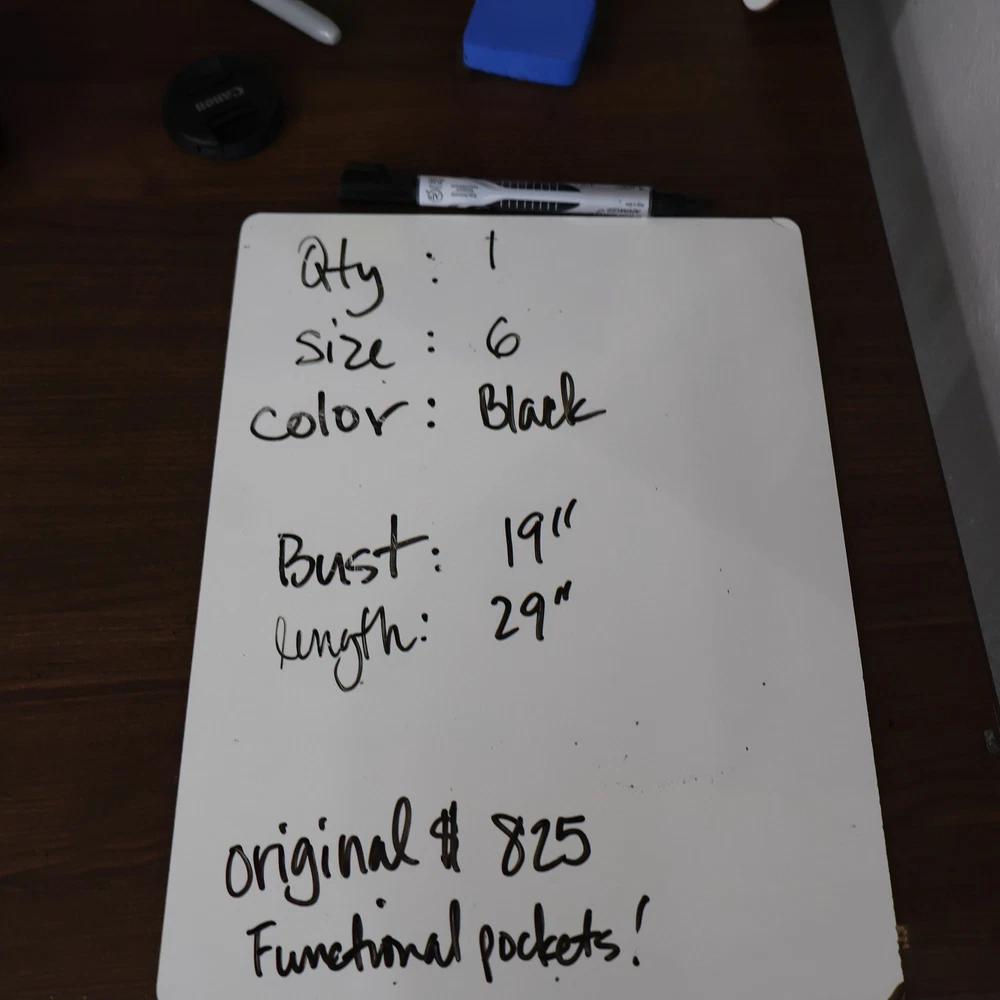 Canon
Qty : 1
size : 6
color : Black
Bust : 19"
length : 29"
original $ 825
Functional pockets!